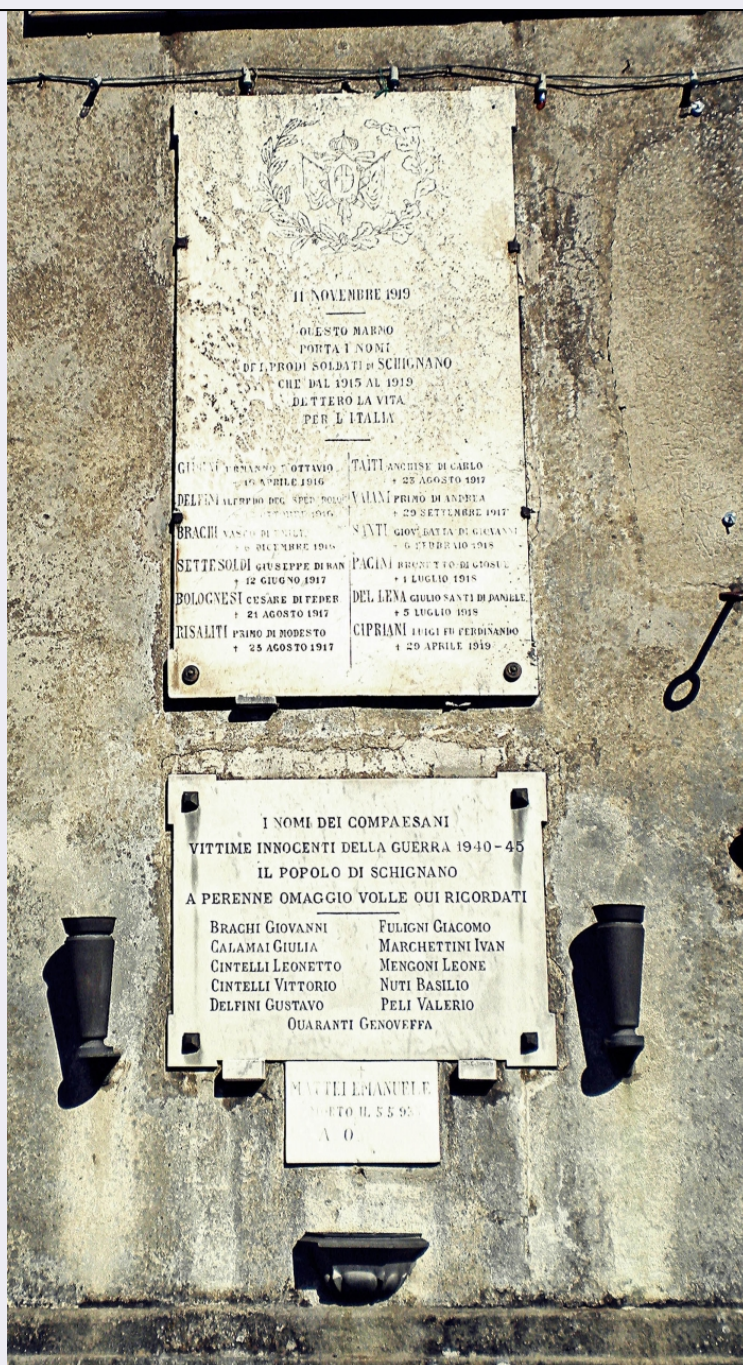 11 NOVEMBRE 1919
QUESTO MARMO
PORTA I NOMI
DEI PRODI SOLDATI DI SCHIGNANO
CHE DAL 1915 AL 1919
DETTERO LA VITA
PER L'ITALIA
OTTAVIO
APRILE 1916
DELFINI ALFREDO DEG.
BRACHI
DICEMBRE 1916
SETTESOLDI GIUSEPPE DI RAN
† 12 GIUGNO 1917
BOLOGNESI CESARE DI FEDER
† 21 AGOSTO 1917
RISALITI PRIMO DI MODESTO
† 23 AGOSTO 1917
TAITI ANCHISE DI CARLO
† 23 AGOSTO 1917
VAIANI PRIMO DI ANDREA
† 29 SETTEMBRE 1917
SANTI GIOV. BATTA DI GIOVANNI
† 6 FEBBRAIO 1918
PACINI BRUNETTO DI GIOSUE
† 1 LUGLIO 1918
DEL LENA GIULIO SANTI DI DANIELE
† 5 LUGLIO 1918
CIPRIANI LUIGI FU FERDINANDO
† 29 APRILE 1919
I NOMI DEI COMPAESANI
VITTIME INNOCENTI DELLA GUERRA 1940-45
IL POPOLO DI SCHIGNANO
A PERENNE OMAGGIO VOLLE QUI RICORDATI
BRACHI GIOVANNI
CALAMAI GIULIA
CINTELLI LEONETTO
CINTELLI VITTORIO
DELFINI GUSTAVO
FULIGNI GIACOMO
MARCHETTINI IVAN
MENGONI LEONE
NUTI BASILIO
PELI VALERIO
QUARANTI GENOVEFFA
MATTEI EMANUELE
IL 5 5 93
A O